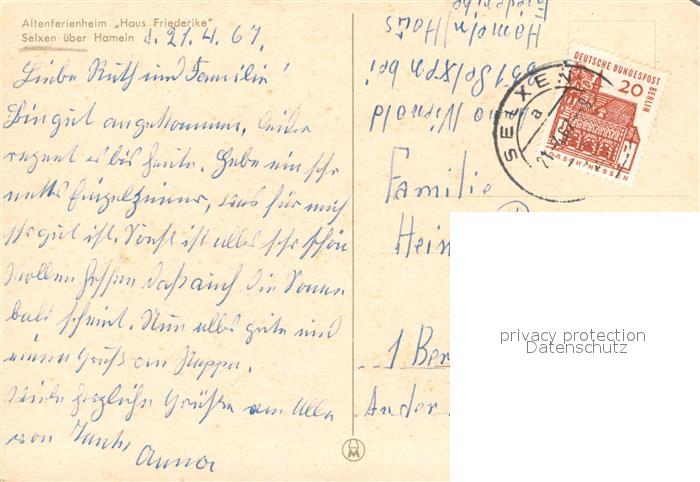 Altenferienheim „Haus Friederike"
Selxen über Hameln d. 21.4.67.
Liebe Ruth und Familie!
Bin gut angekommen, leider
regnet es bis heute. Habe ein sehr
nettes Einzelzimmer, was für mich
sehr gut ist. Sonst ist alles sehr schön
Wollen hoffen daß auch die Sonne
bald scheint. Nun alles gute und
einen Gruß an Pappa.
Viele herzliche Grüße an Alle
von Tante
Anna
Hameln / Haus
Friederike
DEUTSCHE BUNDESPOST BERLIN
20
LORSCH/HESSEN
SELXEN
a
Familie
Hein
1 Ber
Ander
M
privacy protection
Datenschutz